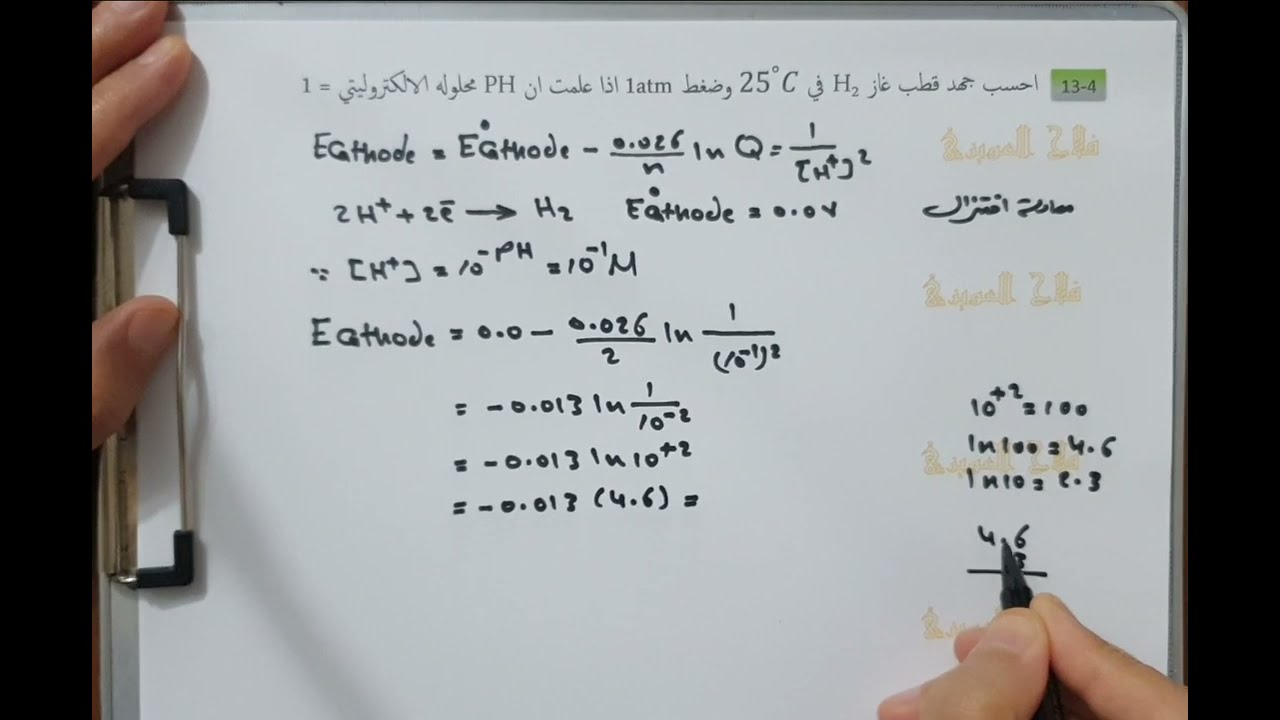 13-4 احسب جهد قطب غاز H₂ في 25°C وضغط 1atm اذا علمت ان PH محلوله الالكتروليتي = 1
Ecathode = E°cathode - 0.026/n ln Q = 1/[H⁺]²
2H⁺ + 2ē → H₂ E°cathode = 0.0V معادلة اختزال
∵ [H⁺] = 10^-PH = 10⁻¹M
Ecathode = 0.0 - 0.026/2 ln 1/(10⁻¹)²
= -0.013 ln 1/10⁻²
= -0.013 ln 10⁺²
= -0.013 (4.6) =
10⁺² = 100
ln 100 = 4.6
ln 10 = 2.3
4.6
3